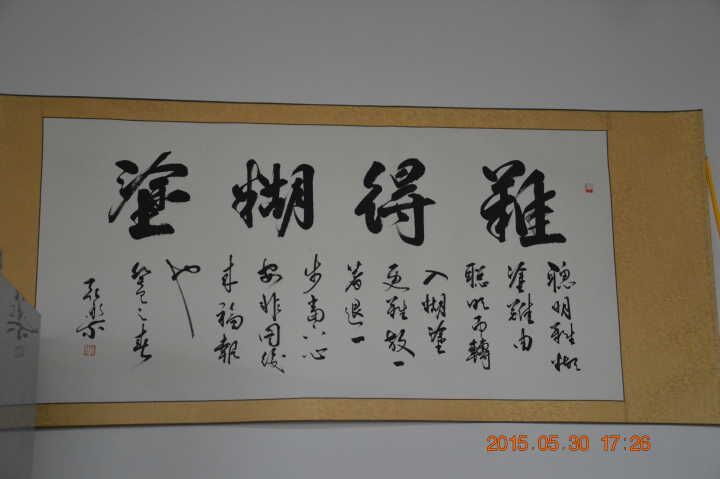 難得糊塗
聰明難糊
塗難由
聰明而轉
入糊塗
更難放一
著退一
步當下心
安非圖後
來福報
也
癸巳之春
2015.05.30 17:26